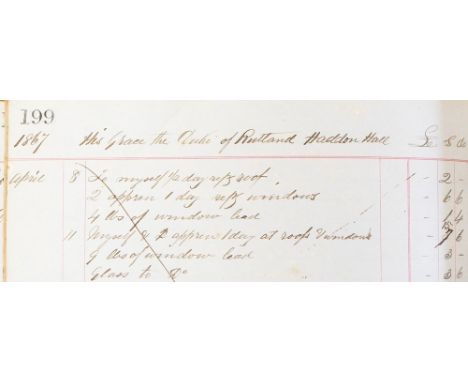 199
1867 His Grace the Duke of Rutland Haddon Hall £ S d
April 8 To myself 1/2 day at roof - 2 -
2 appren 1 day at windows - 6 6
4 lbs of window lead - 1 4
11 Myself & 2 appren 1 day at roofs & windows - 6
9 lbs of window lead - 3
Glass to Do - 3 6